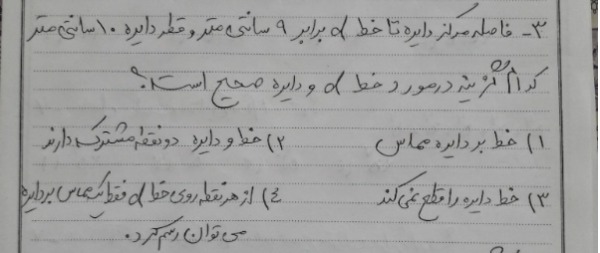 ۳- فاصله مرکز دایره تا خط d برابر ۹ سانتی متر و قطر دایره ۱۰ سانتی متر
کدام گزینه در مورد خط d و دایره صحیح است؟
۱) خط بر دایره مماس ۲) خط و دایره دو نقطه مشترک دارند
۳) خط دایره را قطع نمی کند ۴) از هر نقطه روی خط d فقط یک مماس بر دایره
می توان رسم کرد.